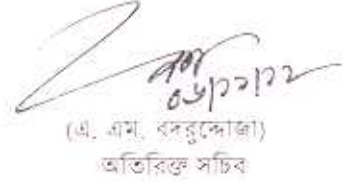 ০৬/১২/১২
(এ, এম, বদরুদ্দোজা)
অতিরিক্ত সচিব